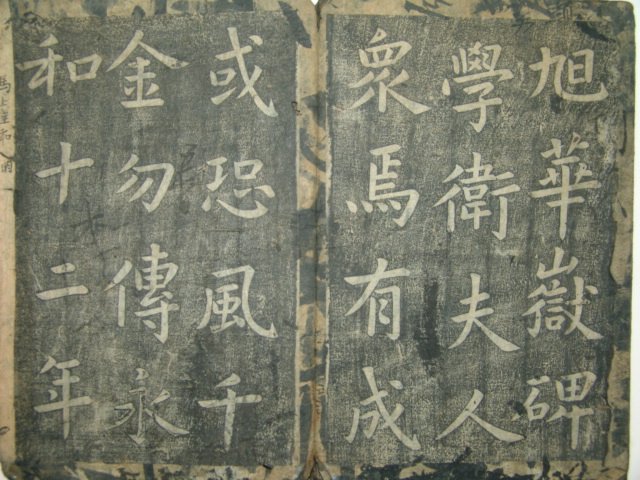 旭華嶽碑
學衛夫人
衆焉有成
或恐風千
金勿傳永
和十二年